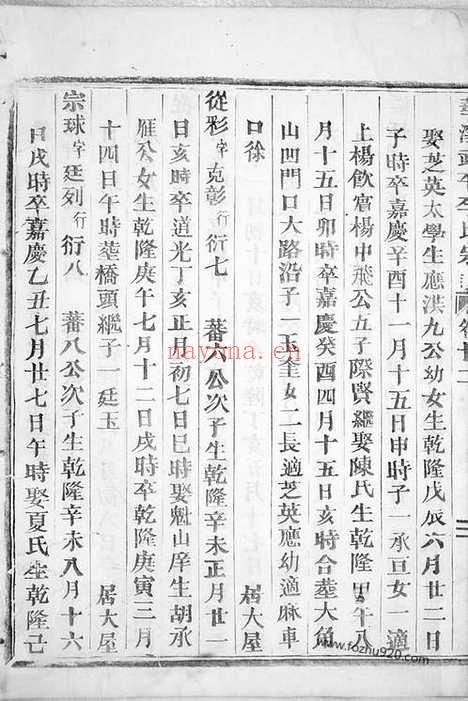 娶芝英太學生應洪九公幼女生乾隆戊辰六月廿二日
子時卒嘉慶辛酉十一月十五日申時子一承亘女一適
上楊飲賓楊中飛公五子際賢繼娶陳氏生乾隆甲午八
月十五日卯時卒嘉慶癸酉四月十五日亥時合塟大魚
山凹門口大路沿子一玉奎女二長適芝英應幼適麻車
口徐 居大屋
從彩字克彰行衍七 蕃六公次子生乾隆辛未正月廿一
日亥時卒道光丁亥正月初七日巳時娶魁山庠生胡承
雁公女生乾隆庚午七月十二日戌時卒乾隆庚寅三月
十四日午時塟橋頭繼子一廷玉 居大屋
宗球字廷列行衍八 蕃八公次子生乾隆辛未八月十六
日戌時卒嘉慶乙丑七月廿七日午時娶夏氏生乾隆己
nayona.cn
www.fozhu920.com